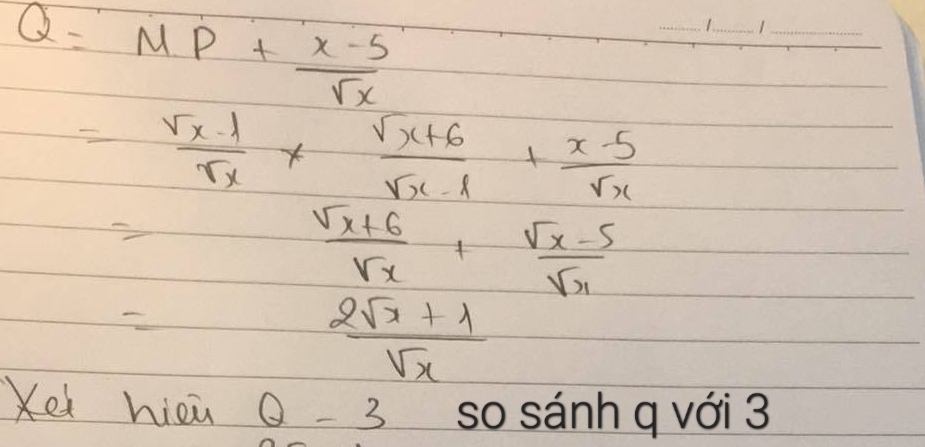 Q = MP + (x - 5)/√x
= (√x - 1)/√x × (√x + 6)/(√x - 1) + (x - 5)/√x
= (√x + 6)/√x + (√x - 5)/√x
= (2√x + 1)/√x
Xét hiệu Q - 3 so sánh q với 3